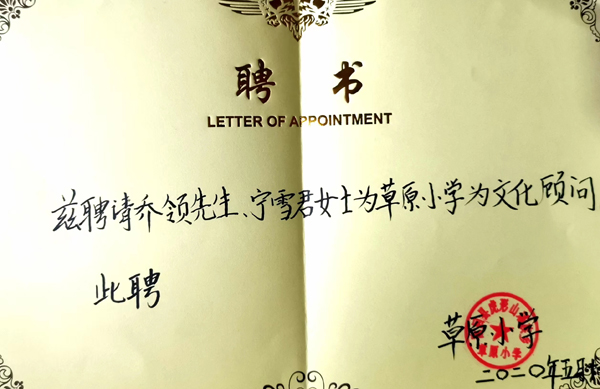 聘 书
LETTER OF APPOINTMENT
兹聘请乔领先生、宁雪君女士为草原小学为文化顾问
此聘
草原小学
草原小学
二〇二〇年五月